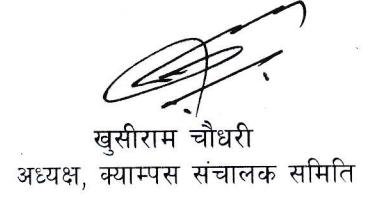 खुसीराम चौधरी
अध्यक्ष, क्याम्पस संचालक समिति